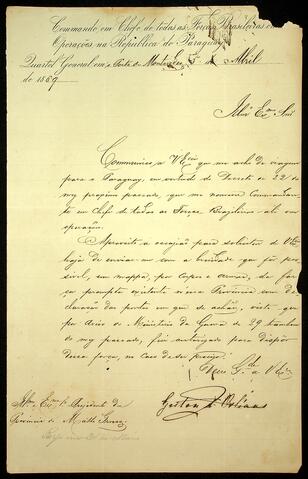 Commando em Chefe de todas as Forças Brasileiras em
Operações na Republica do Paraguay
Quartel General em o Porto de Montevideo 5 de Abril
de 1869
Illmo Exmo Snr
Communico a V Excia que me acho de viagem
para o Paraguay, em virtude do Decreto de 22 do
mez proximo passado, que me nomeou Commandan-
te em Chefe de todas as Forças Brasileiras alli em
operação.
Aproveito a occasião para solicitar de V Exa
haja de enviar-me com a brevidade que fôr pos-
sivel, um mappa, por Corpos e armas, da força
prompta existente nessa Provincia com de-
claração dos pontos em que se achão, visto que
por Aviso do Ministerio da Guerra de 29 tambem
do mez passado, fui autorisado para dispôr
dessa força, no caso de ser preciso.
Deus Gde a V Exa
Gaston d'Orléans
Illmo e Exmo Sr Presidente da
Provincia de Matto Grosso